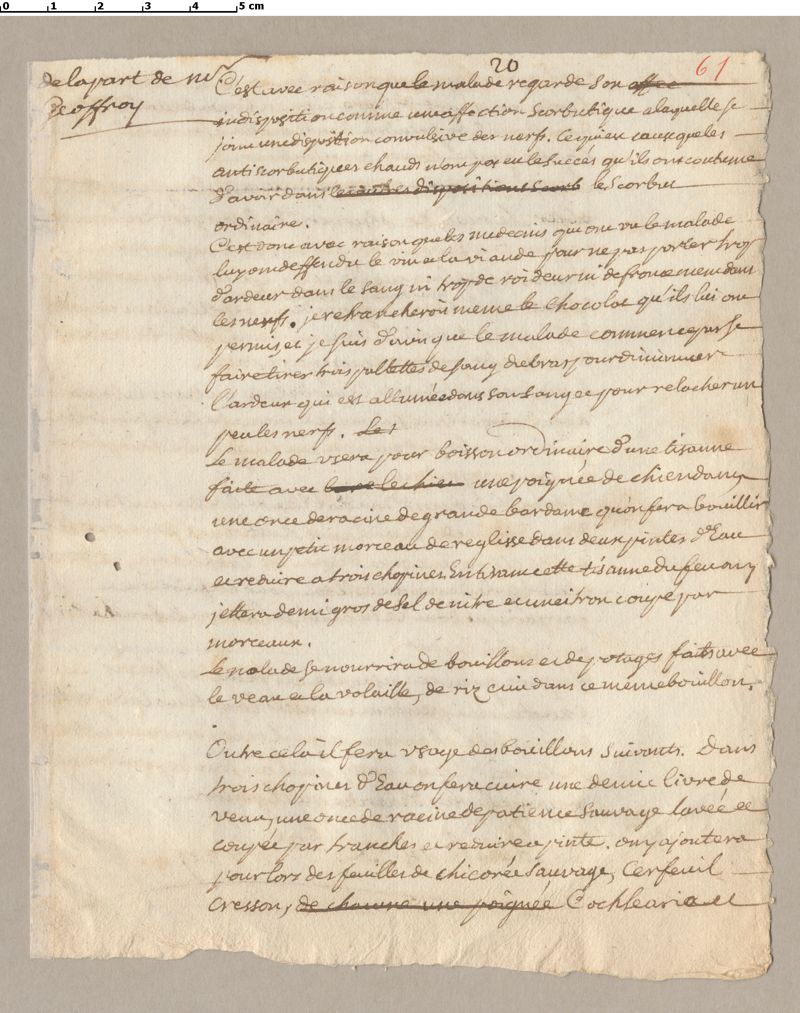 0 1 2 3 4 5 cm
20
61
de la part de mr
Geoffroy
C'est avec raison que le malade regarde son affec
indisposition comme une affection scorbutique a laquelle se
joint une disposition convulsive des nerfs. Ce qui est cause que les
antiscorbutiques chauds n'ont pas eu le succés qu'ils ont coutume
d'avoir dans les autres dispositions scorb le scorbut
ordinaire.
C'est donc avec raison que les medecins qui ont vu le malade
luy ont deffendu le vin et la viande pour ne pas porter trop
d'ardeur dans le sang ni trop de roideur ni de froncement dans
les nerfs. je retrancherois meme le chocolat qu'ils lui ont
permis, et je suis d'avis que le malade commence par se
faire tirer trois pallettes de sang du bras pour diminuer
l'ardeur qui est allumée dans son sang et pour relacher un
peu les nerfs. Le
Le malade usera pour boisson ordinaire d'une tisanne
faite avec le chien une poignée de chiendant,
une once de racine de grande bardane qu'on fera bouillir
avec un petit morceau de reglisse dans deux pintes d'Eau
et reduire a trois chopines. En tirant cette tisanne du feu on y
jettera demi gros de sel de nitre et un citron coupé par
morceaux.
Le malade se nourrira de bouillons et de potages faits avec
le veau et la volaille, de riz cuit dans ce meme bouillon.
Outre cela il fera usage des bouillons suivants. Dans
trois chopines d'Eau on fera cuire une demie livre de
veau, une once de racine de patience sauvage lavée et
coupée par tranches et reduire a pinte. on y ajoutera
pour lors des feuilles de chicorée sauvage, Cerfeuil
cresson, de chacune une poignée Cochlearia et